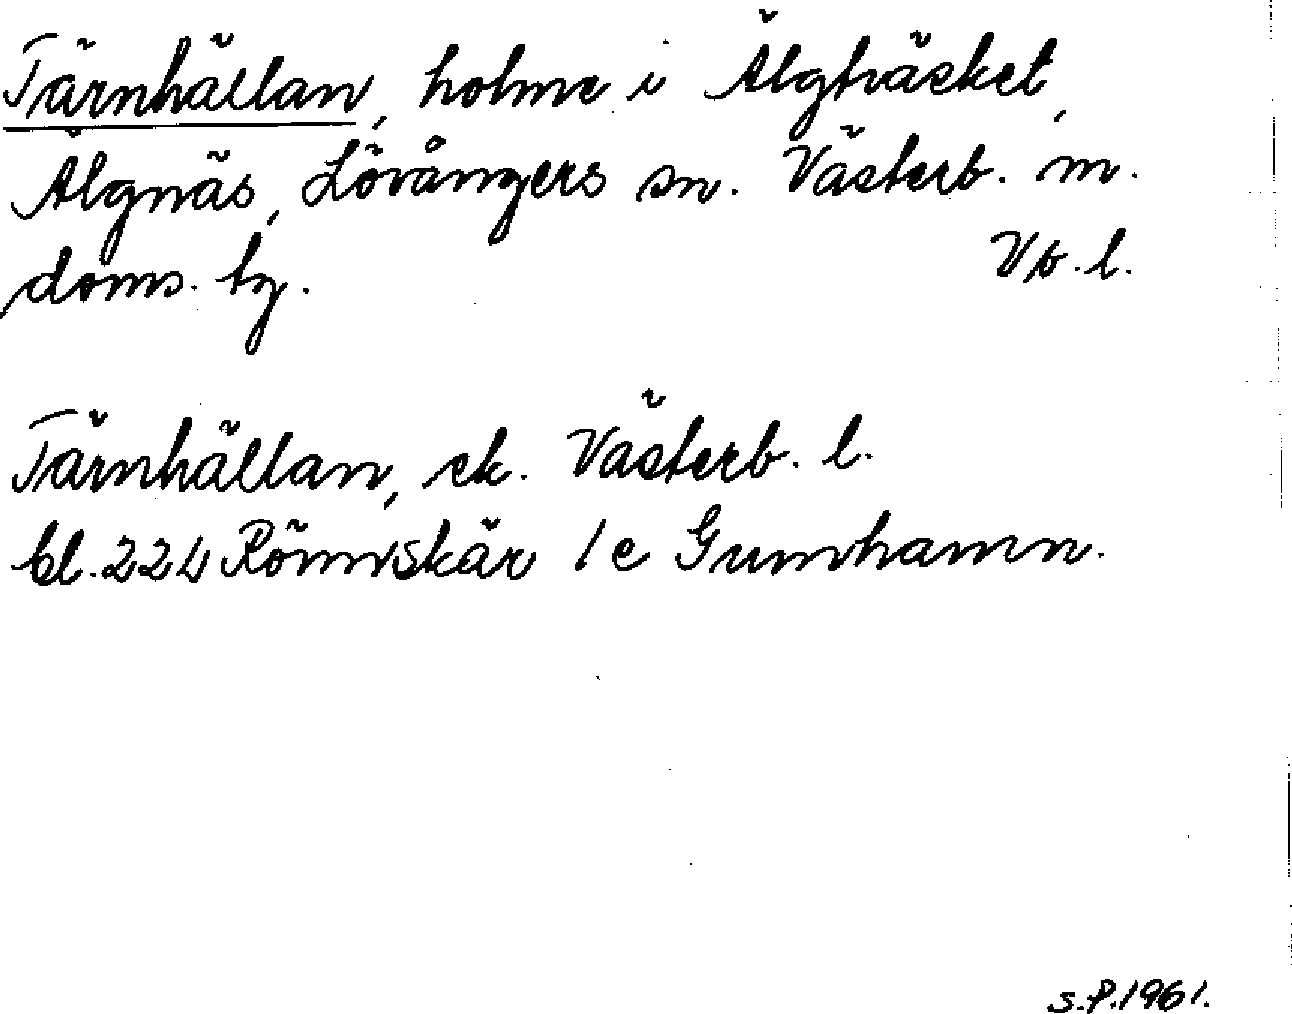 Tärnhällan, holme i Älgträsket,
Älgnäs, Lövångers sn. Västerb. m.
doms. tg. Vb. l.
Tärnhällan, ek. Västerb. l.
bl. 224 Römskär 1 e Gumhamn.
S.P. 1961.